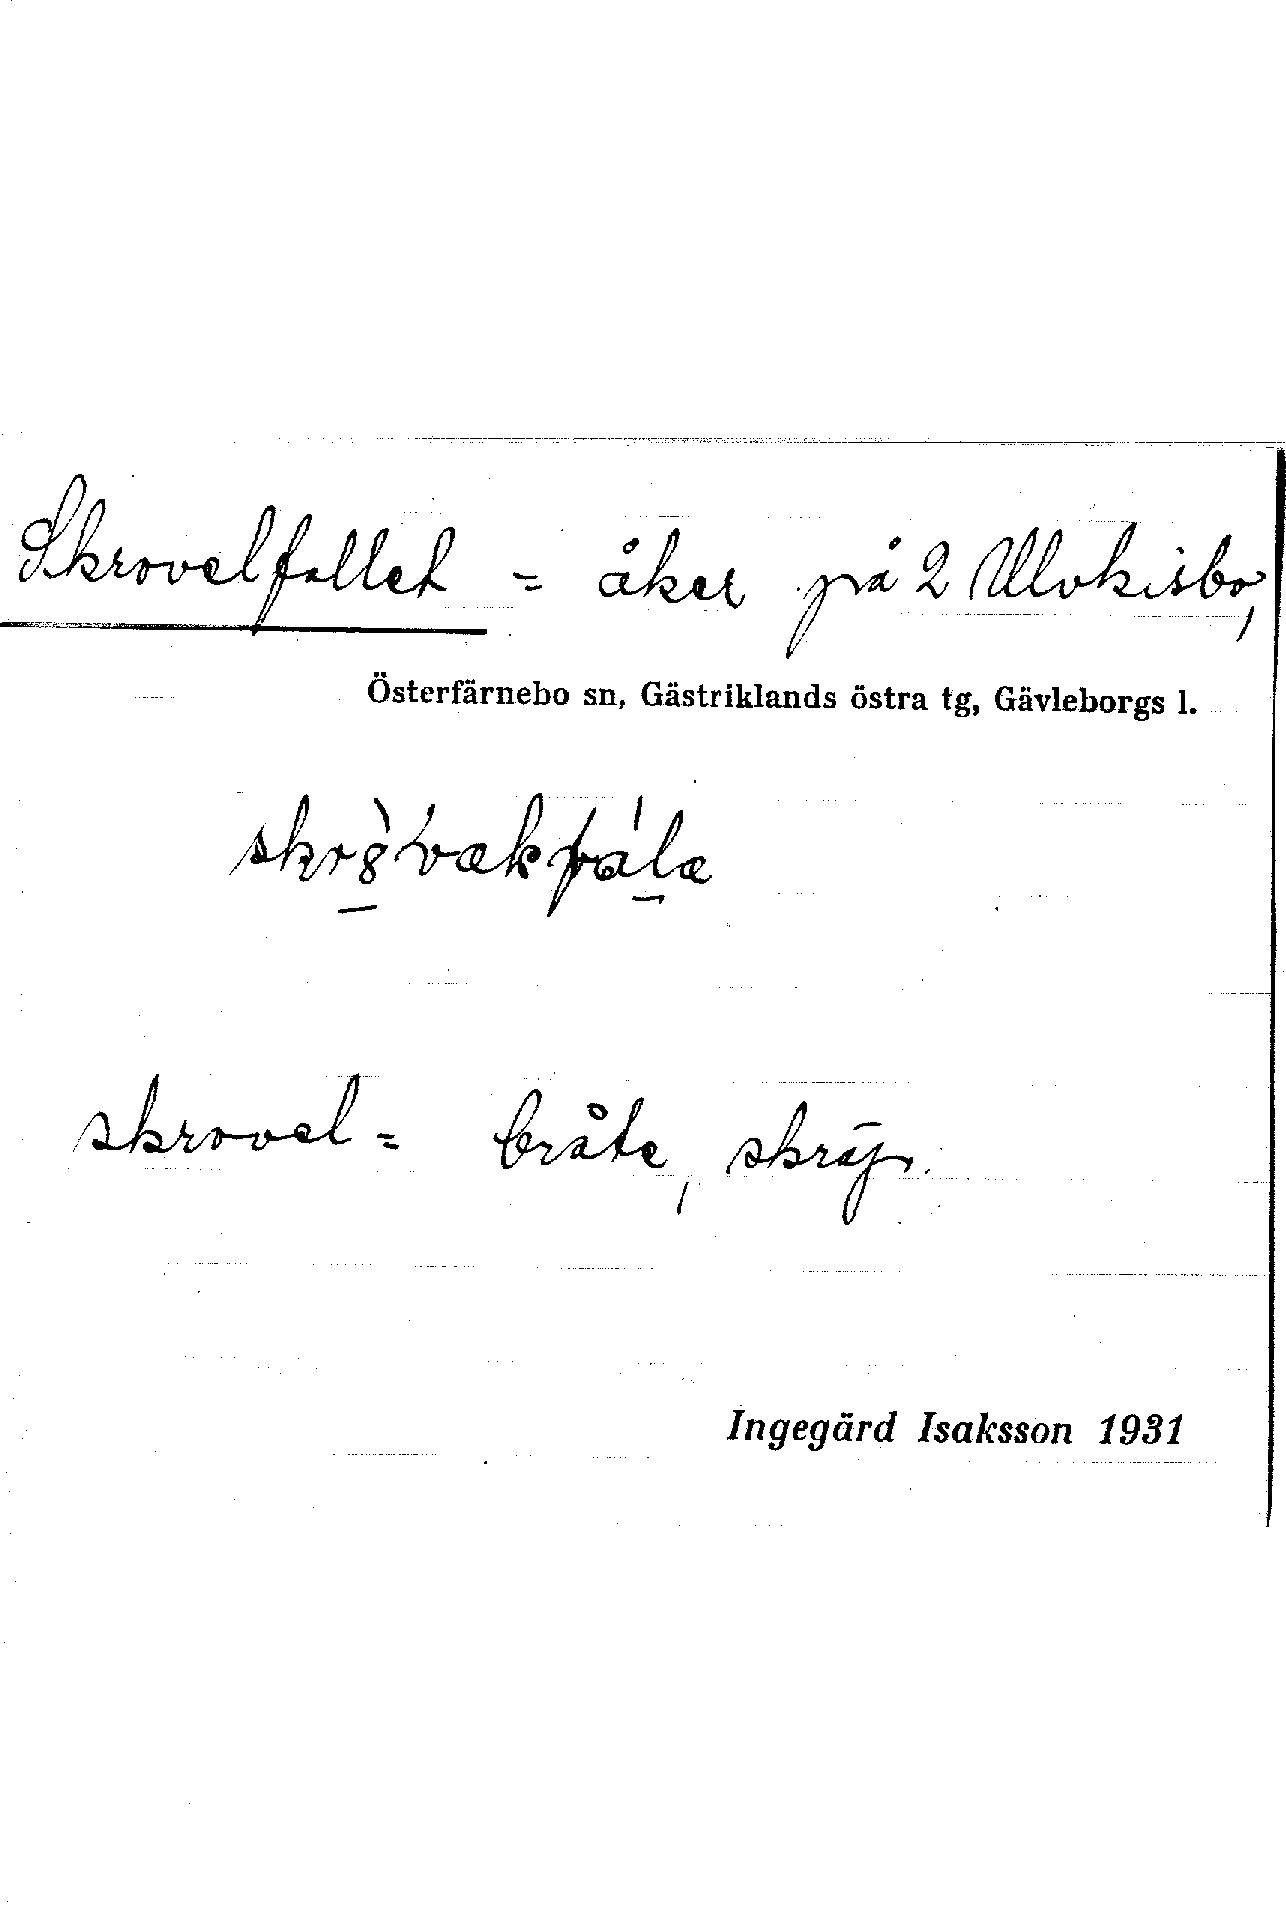 Skrovelfallet = åker på 2 Ulvkisbo,
Österfärnebo sn, Gästriklands östra tg, Gävleborgs l.
skrovel = bråte, skräp.
Ingegärd Isaksson 1931